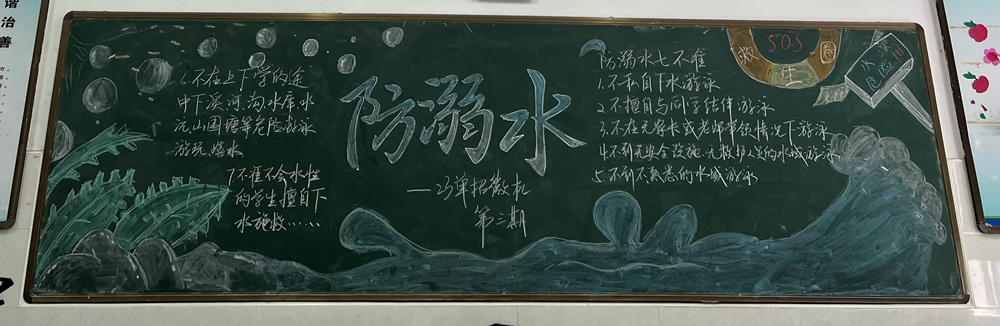 谐
治
善
6.不在上下学的途
中下溪、河、沟、水库、水
沆、山围塘等危险游泳
游玩、嬉水
7.不准不会水性
的学生擅自下
水施救……
防溺水
第三期
防溺水七不准
1.不私自下水游泳
2.不擅自与同学结伴游泳
3.不在无家长或老师带领情况下游泳
4.不到无安全设施、无救护人员的水域游泳
5.不到不熟悉的水域游泳
SOS
救生圈
水深危险